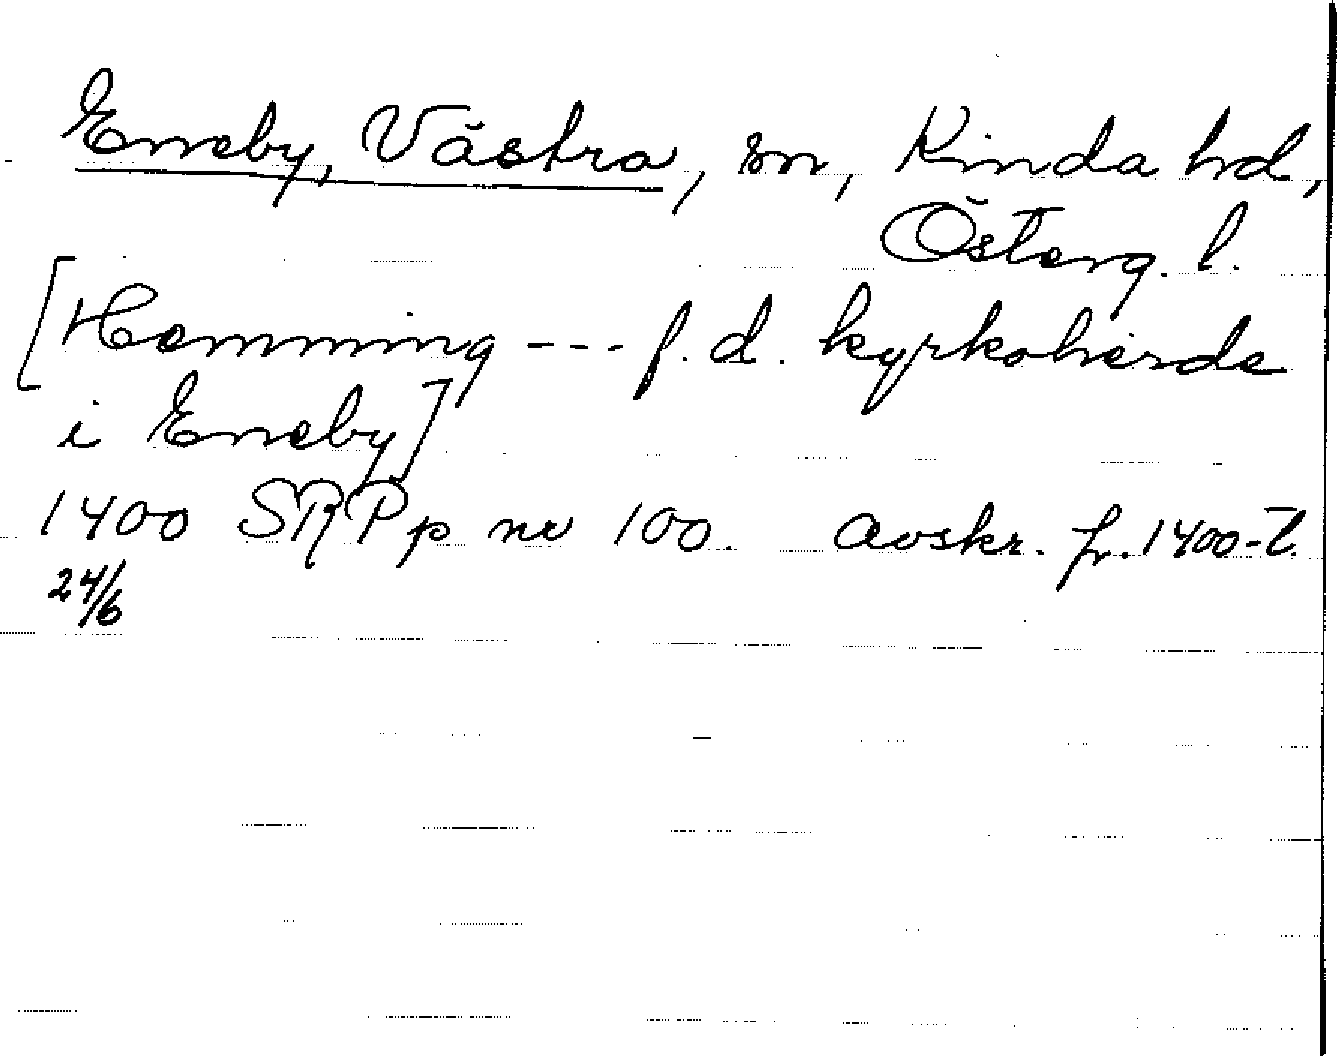 Eneby, Västra, sn, Kinda hd,
Österg. l.
[Hemming --- f. d. kyrkoherde
i Eneby]
1400 SRPp nr 100. Avskr. fr. 1400-t.
24/6